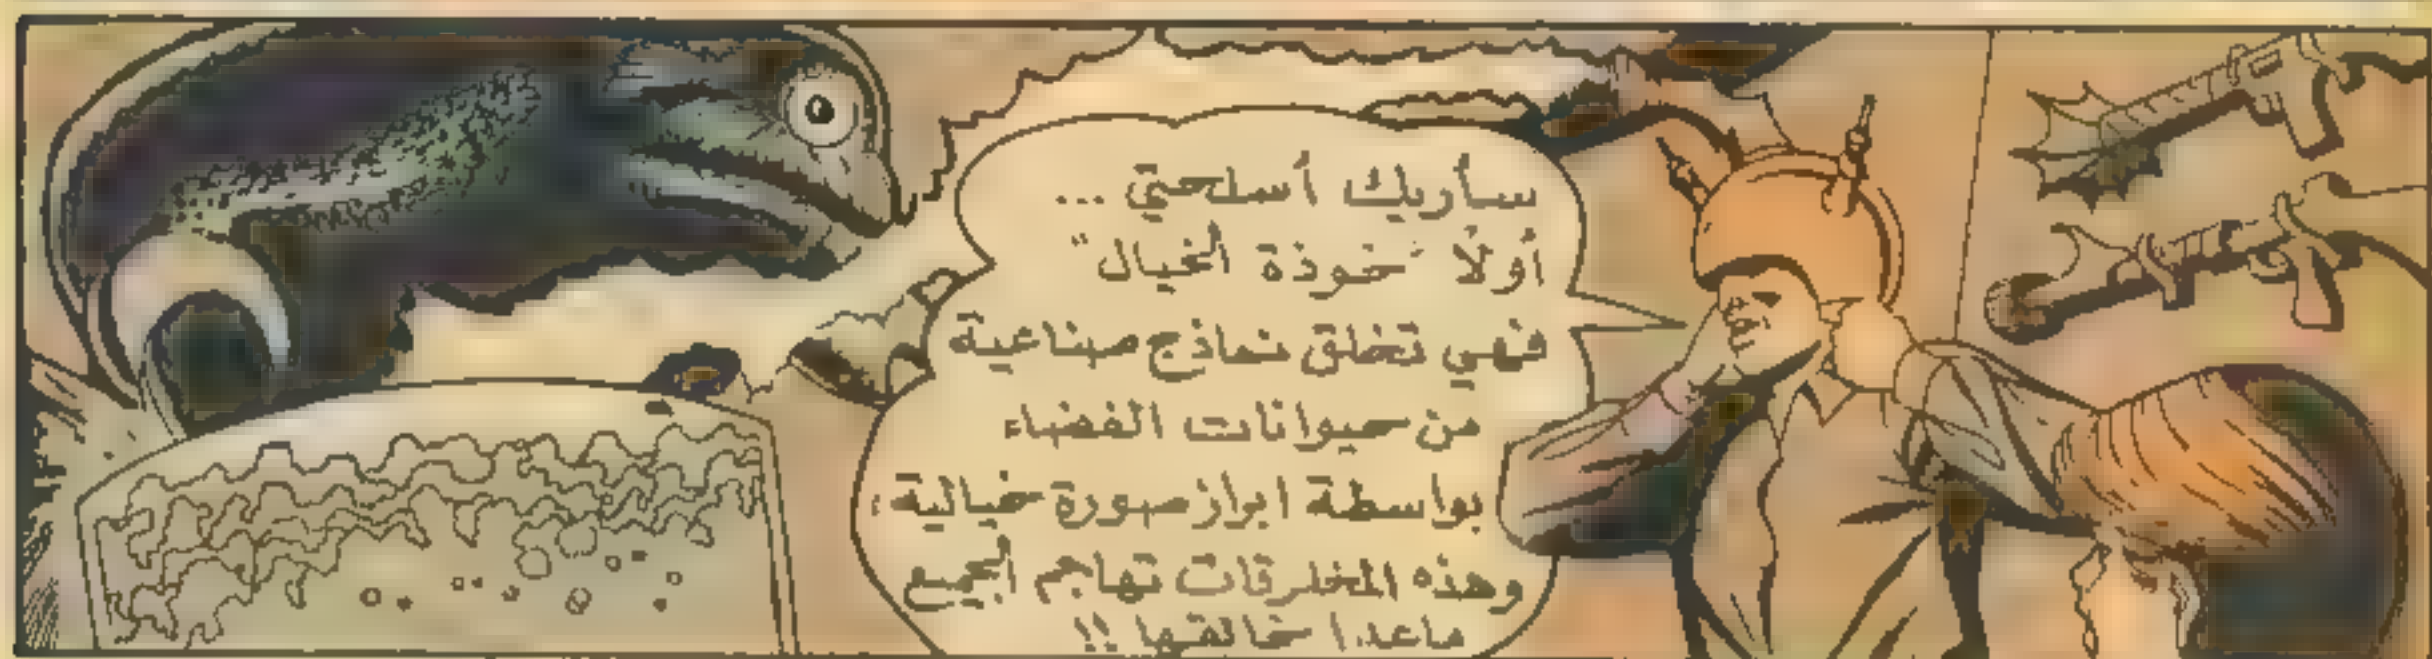 سأريك أسلحتي ...
أولًا "خوذة الخيال"
فهي تخلق نماذج صناعية
من حيوانات الفضاء
بواسطة ابراز صورة خيالية ،
وهذه المخلوقات تهاجم الجميع
ماعدا خالقها !!